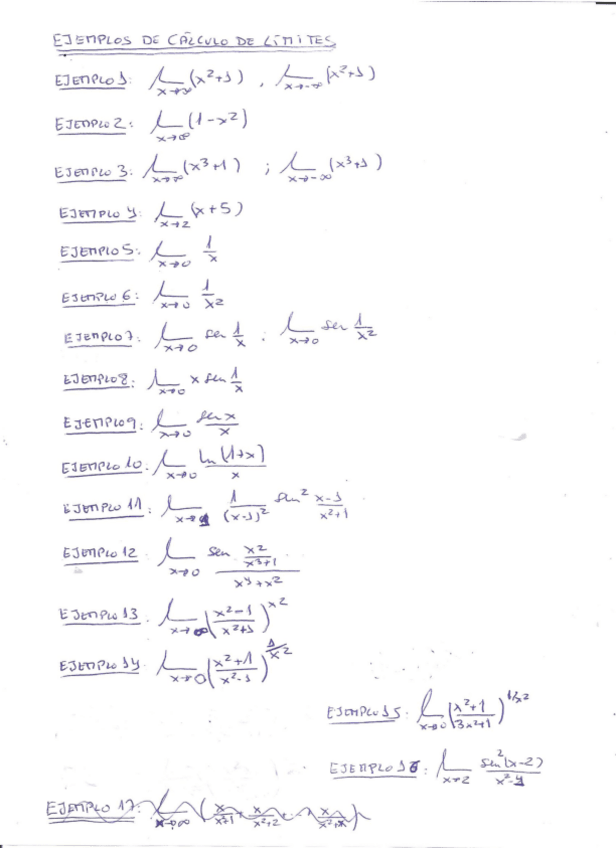 EJEMPLOS DE CÁLCULO DE LÍMITES
EJEMPLO 1: Lim x→∞ (x²+1) , Lim x→-∞ (x²+1)
EJEMPLO 2: Lim x→∞ (1-x²)
EJEMPLO 3: Lim x→∞ (x³+1) ; Lim x→-∞ (x³+1)
EJEMPLO 4: Lim x→2 (x+5)
EJEMPLO 5: Lim x→0 1/x
EJEMPLO 6: Lim x→0 1/x²
EJEMPLO 7: Lim x→0 sen 1/x ; Lim x→0 sen 1/x²
EJEMPLO 8: Lim x→0 x sen 1/x
EJEMPLO 9: Lim x→0 sen x/x
EJEMPLO 10: Lim x→0 ln(1+x)/x
EJEMPLO 11: Lim x→1 1/(x-1)² sen² (x-1)/(x²+1)
EJEMPLO 12 Lim x→0 (sen x²/(x³+1))/(x⁴+x²)
EJEMPLO 13. Lim x→∞ ((x²-1)/(x²+1))^x²
EJEMPLO 14. Lim x→0 ((x²+1)/(x²-1))^(1/x²)
EJEMPLO 15: Lim x→0 ((x²+1)/(3x²+1))^(1/x²)
EJEMPLO 16: Lim x→2 sen²(x-2)/(x²-4)
EJEMPLO 17: Lim x→∞ (x/(x²+1) + x/(x²+2) + ... + x/(x²+x))